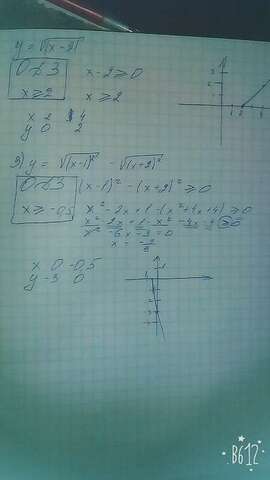 y = √(x-2)
ОДЗ x-2≥0
x≥2 x≥2
x 2 4
y 0 2
3) y = √(x-1)² - √(x+2)²
ОДЗ (x-1)² - (x+2)² ≥0
x ≥ -0,5 x² - 2x+1 - (x²+4x+4) ≥0
x² - 2x + 1 - x² - 4x - 4 ≥0
-6x - 3 = 0
x 0 -0,5
y -3 0
B612